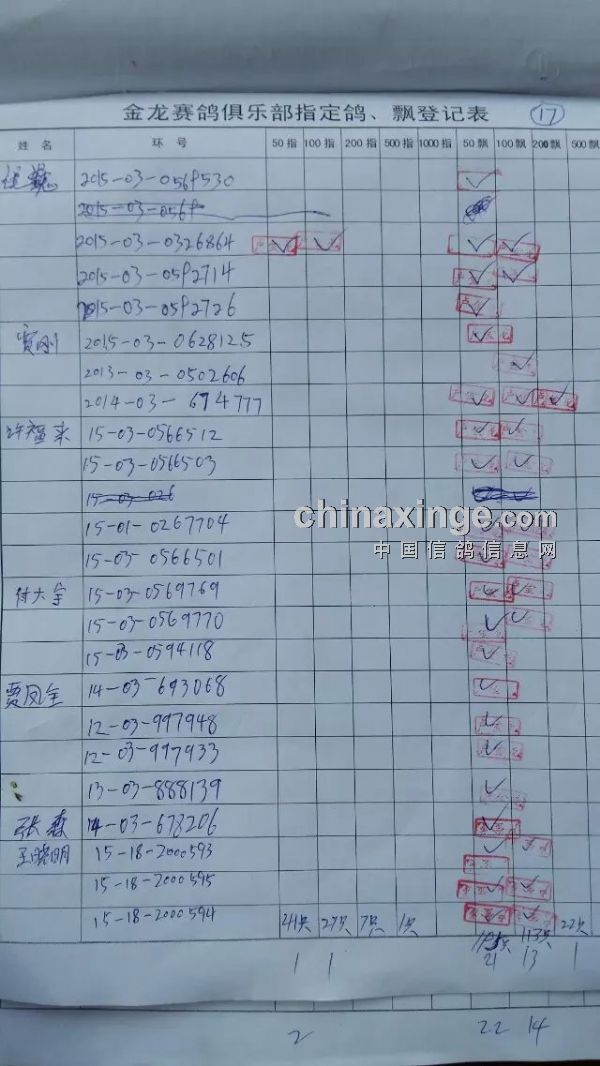 金龙赛鸽俱乐部指定鸽、飘登记表 17
姓 名 环 号 50指 100指 200指 500指 1000指 50飘 100飘 200飘 500飘
2015-03-0569530
2015-03-0569
2015-03-0326864
2015-03-0592714
2015-03-0592726
贾刚 2015-03-0628125
2013-03-0502606
2014-03-674777
许福来 15-03-0566512
15-03-0566503
15-03-026
chinaxinge.com
15-01-0267704
中国信鸽信息网
15-03-0566501
付大宇 15-03-0569769
15-03-0569770
15-03-0594118
贾凤全 14-03-693068
12-03-997948
12-03-997933
13-03-888139
张森 14-03-678206
王晓明 15-18-2000593
15-18-2000595
15-18-2000594 241只 27只 7只 1只 113只 22只
1 1 21 13 1
2 22 14